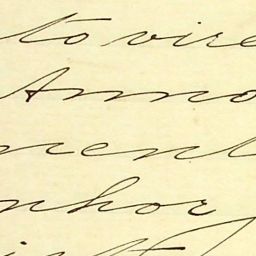 to vire
Anno
ment
nhor